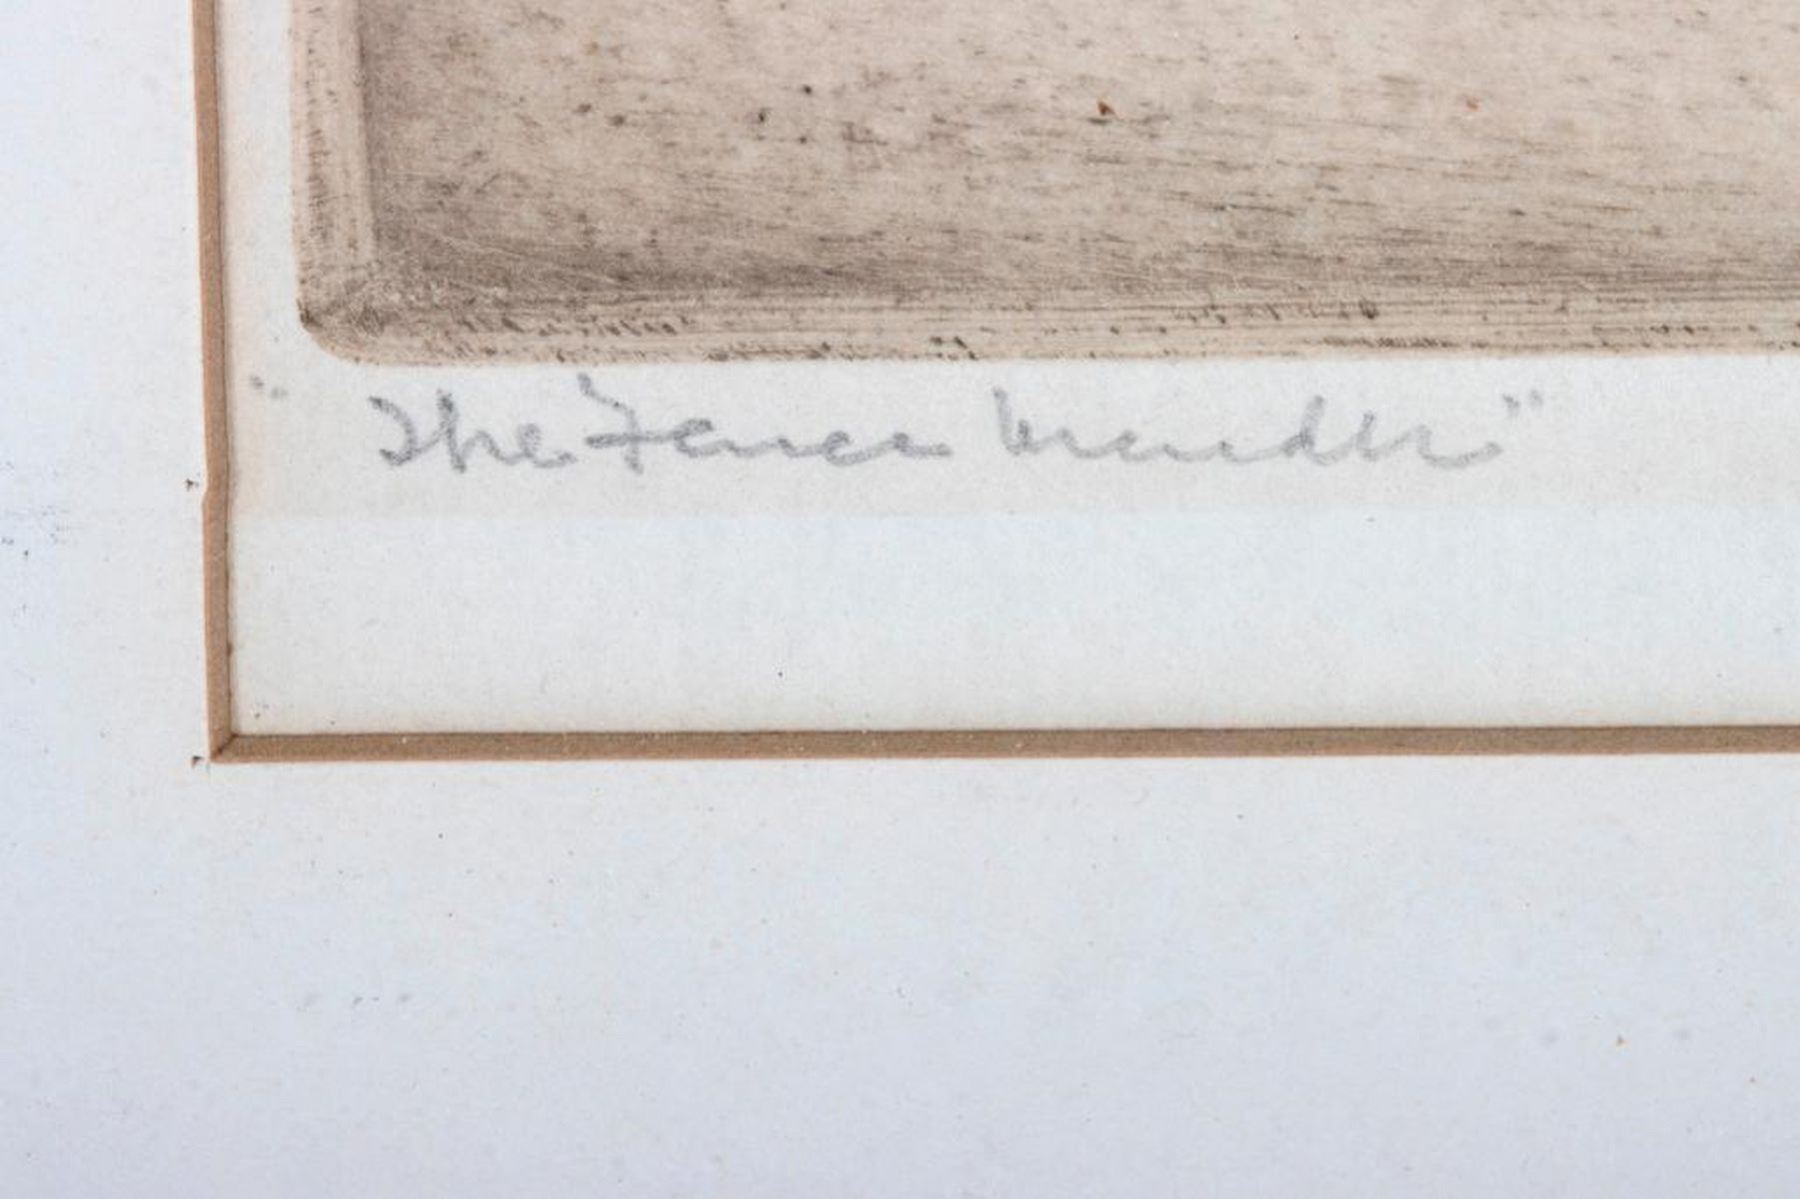 "The Fence Mender"